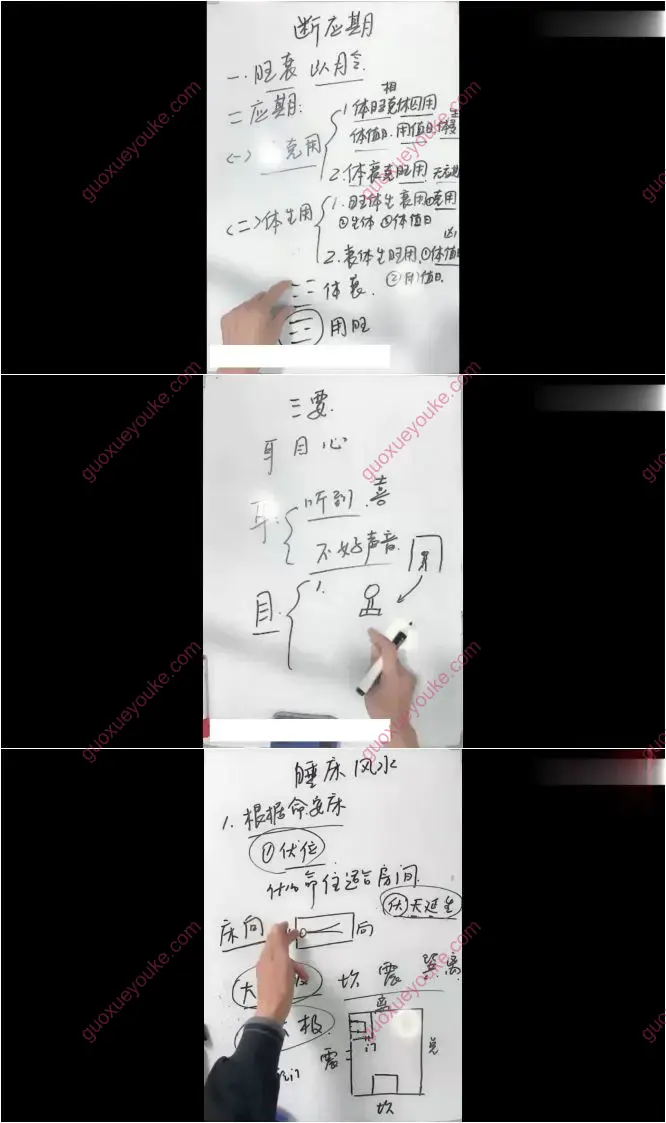 断应期
一.旺衰 以月令.
二应期:
(一) 克用
1.体旺克休囚用
相
体值日.用值日.体受生
2.体衰克旺用.
(二)体生用
1.旺体生衰用.克用
①生体 ②体值日
2.衰体生旺用.①体值日
凶
②用值日.
体衰.
用旺
三要.
耳 目 心
耳.
听到.喜
不好声音.
目.
1.
睡床风水
1.根据命安床
①伏位
什么命住适合房间.
伏天延生
床向
向
大 极
坎 震 巽 离
极.
离
震
门
兑
坎
guoxueyouke.com
guoxueyouke.com
guoxueyouke.com
guoxueyouke.com
guoxueyouke.com
guoxueyouke.com